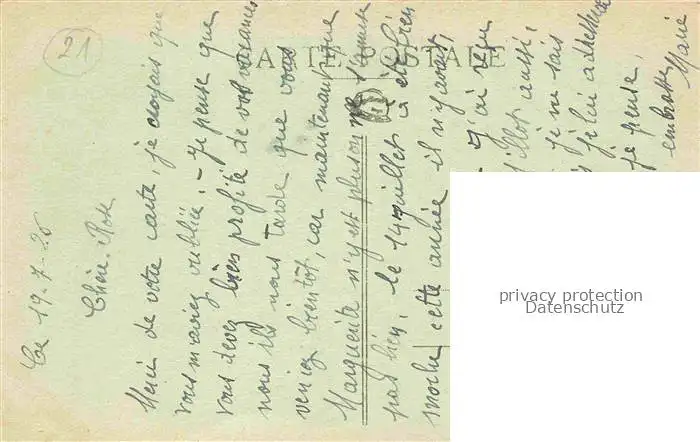 21
CARTE POSTALE
Ce 19-7-25
Chère Rose
Merci de votre carte, je croyais que
vous m'aviez oubliée. - Je pense que
vous devez bien profité de vos vacances
nous ici nous tarde que vous
veniez bientôt, car maintenant que
Marguerite n'y est plus on ne s'amuse
pas bien. le 14 juillet a été bien
moche cette année il n'y avait
J'ai reçu
aussi,
je ne sais
je lui adresse
je pense,
embrasse
Marie
privacy protection
Datenschutz